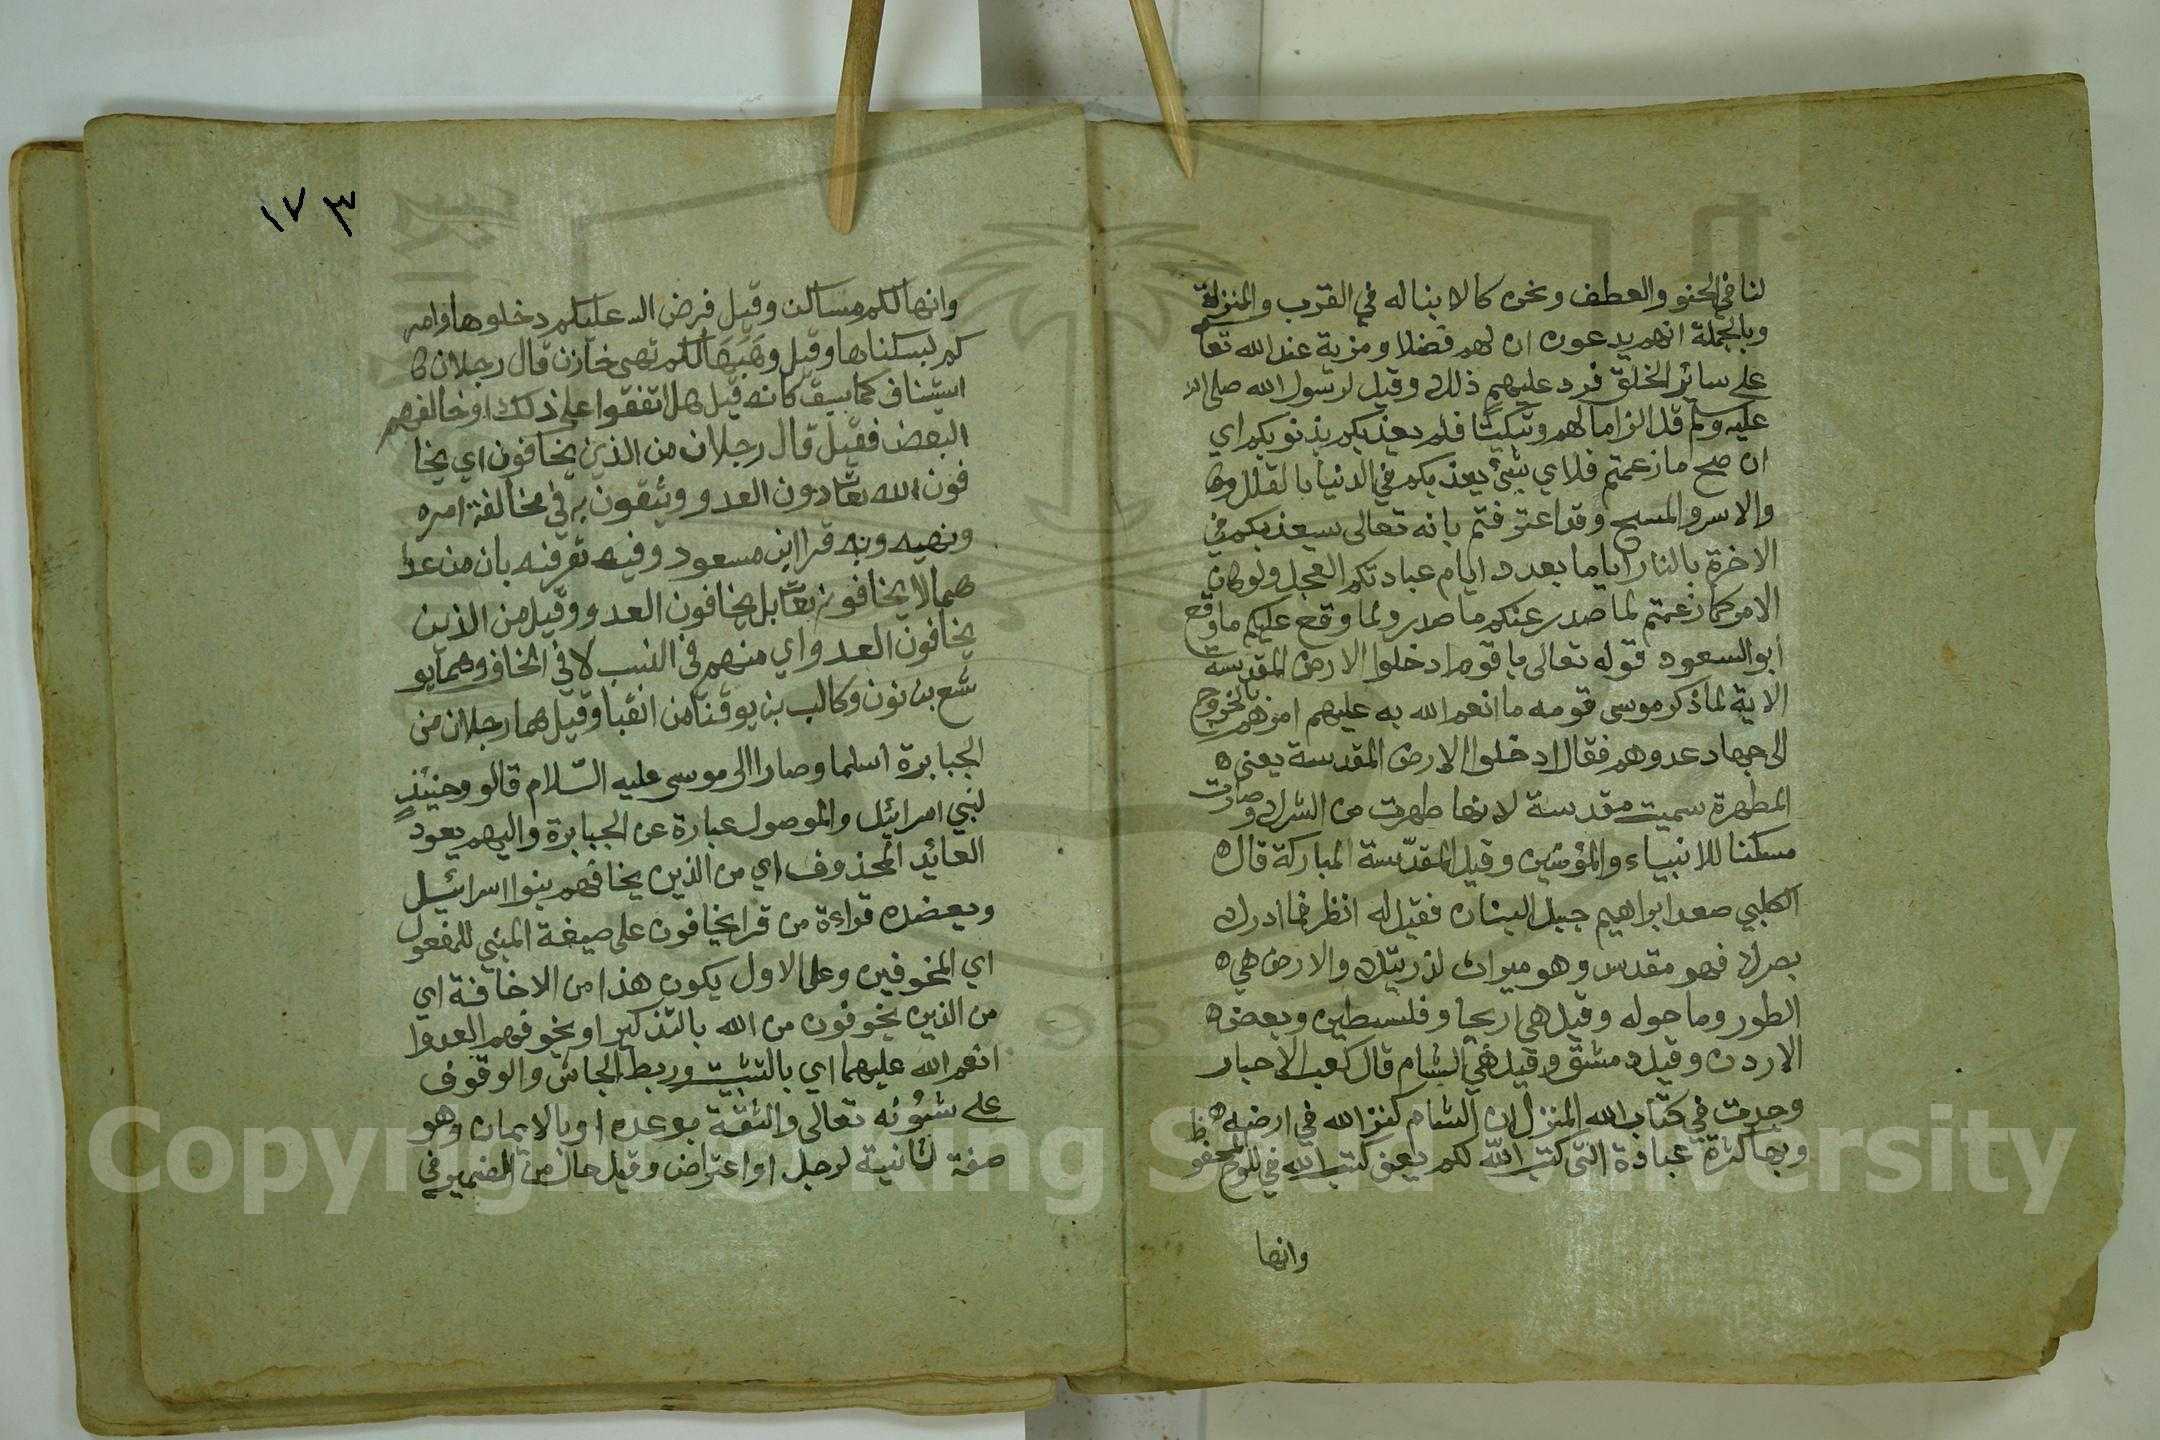 لنا في الحنو والعطف ونحن كالابنا له في القرب والمنزلة
وبالجملة انهم يدعون ان لهم فضلا ومزية عند الله تعا
على سائر الخلق فرد عليهم ذلك وقيل لرسول الله صلى الله
عليه وسلم قل الزاما لهم وتبكيتا فلم يعذبكم بذنوبكم اي
ان صح ما زعمتم فلاي شئ يعذبكم في الدنيا بالقتل
والاسر والمسخ وقد اعترفتم بانه تعالى سيعذبكم في
الاخرة بالنار اياما بعدد ايام عبادتكم العجل ولو كان
الامر كما زعمتم لما صدر عنكم ما صدر ولما وقع عليكم ما وقع
أبو السعود قوله تعالى يا قوم ادخلوا الارض المقدسة
الاية لما ذكر موسى قومه ما انعم الله به عليهم امرهم بالخروج
الى جهاد عدوهم فقال ادخلوا الارض المقدسة يعني
المطهرة سميت مقدسة لانها طهرت من الشرك وصارت
مسكنا للانبياء والمؤمنين وقيل المقدّسة المباركة قال
الكلبي صعد ابراهيم جبل لبنان فقيل له انظر فما ادرك
بصرك فهو مقدس وهو ميراث لذريتك والارض هي
الطور وما حوله وقيل هي اريحا وفلسطين وبعض
الاردن وقيل دمشق وقيل هي الشام قال كعب الاحبار
وجدت في كتاب الله المنزل ان الشام كنز الله في ارضه
وبها كثرة عبادة التي كتب الله لكم يعني كتب الله في اللوح المحفوظ
وانها
١٧٣
وانها لكم مساكن وقيل فرض الله عليكم دخلوها وامر
كم بسكناها وقيل وهبها لكم تهى خازن قال رجلان
استيناف كما سبق كانه قيل هل اتفقوا على ذلك او خالفهم
البعض فقيل قال رجلان من الذين يخافون اي يخا
فون الله تعا دون العدو ويتقون به في مخالفة امره
ونهيه وبه قرا ابن مسعود وفيه تعرفنه بان من عدا
هما لا يخافونه تعا بل يخافون العدو وقيل من الذين
يخافون العدو اي منهم في النسب لا في الخاف وهما يو
شع بن نون وكالب بن يوقنا من انقبا وقيل هما رجلان من
الجبابرة اسلما وصارا الى موسى عليه السّلام قالو وحينئذٍ
لنبي اسرائيل والموصول عبارة عن الجبابرة واليهم يعود
العائد المحذوف اي من الذين يخافهم بنوا اسرائيل
ويعضده قراءة من قرا يخافون على صيغة المبني للمفعول
اي المخوفين وعلى الاول يكون هذا من الاخافة اي
من الذين يخوفون من الله بالتذكير او يخوفهم العدوا
انعم الله عليهما اي بالتثبيت وربط الجاش والوقوف
على شؤنه تعالى والثقة بوعده او بالايمان وهو
صفة ثانية لرجل او اعتراض وقيل حال من الضمير في
Copyright © King Saud University